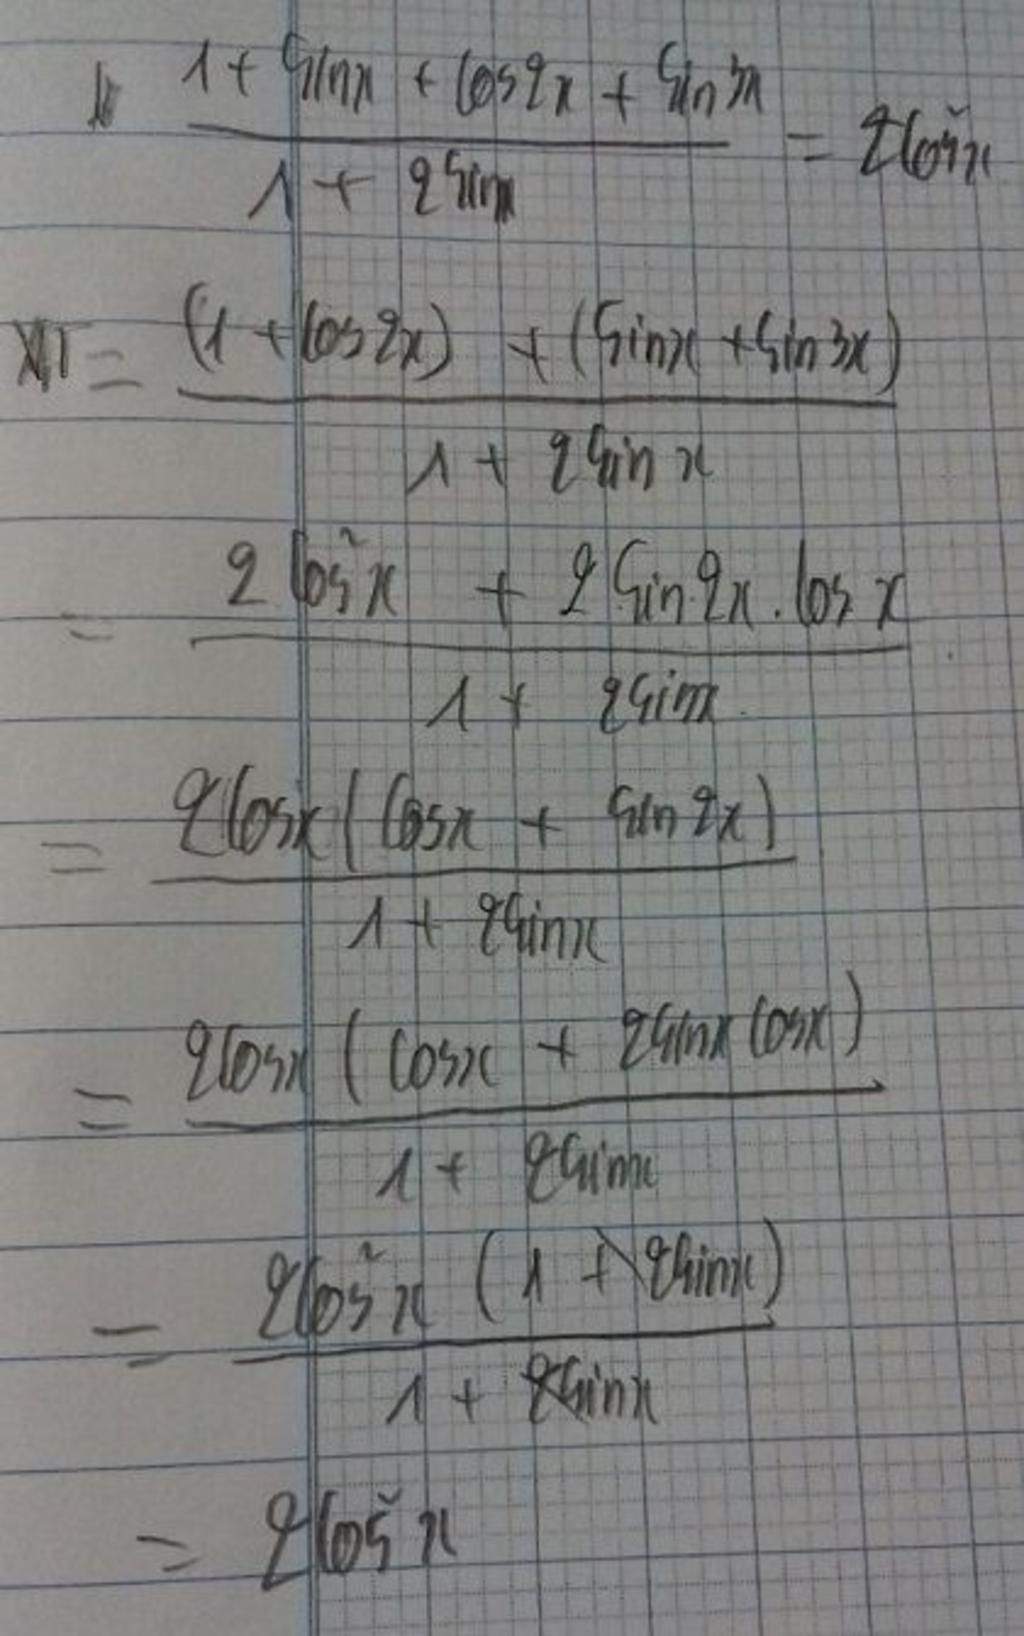 (1 + sinx + cos2x + sin3x) / (1 + 2sinx) = 2cos²x
= ((1 + cos2x) + (sinx + sin3x)) / (1 + 2sinx)
= (2cos²x + 2sin2x.cosx) / (1 + 2sinx)
= 2cosx(cosx + sin2x) / (1 + 2sinx)
= 2cosx(cosx + 2sinxcosx) / (1 + 2sinx)
= 2cos²x(1 + 2sinx) / (1 + 2sinx)
= 2cos²x